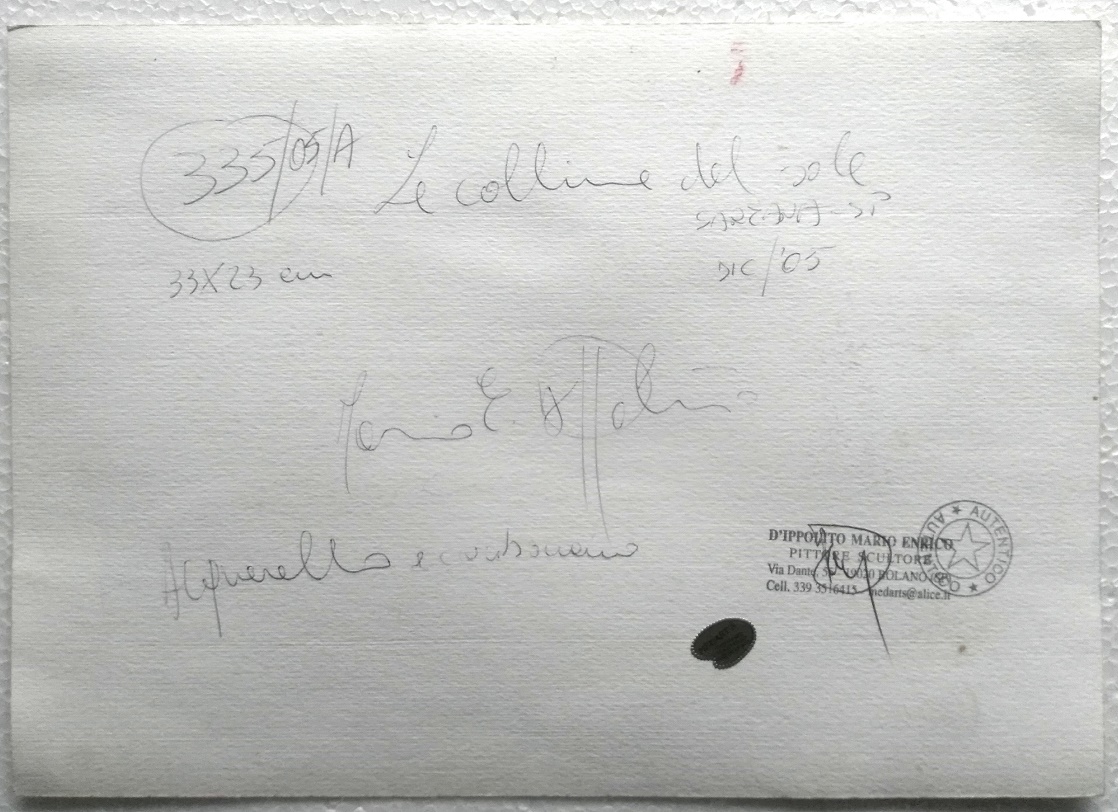 335/05/A Le colline del sole
SARZANA - SP
33X23 cm
DIC/'05
Mario E. D'Ippolito
Acquerello e carboncino
D'IPPOLITO MARIO ENRICO
PITTORE SCULTORE
Via Dante, 19020 BOLANO (SP)
Cell. 339 3516415 medarts@alice.it
AUTENTICO ★ AUTENTICO ★